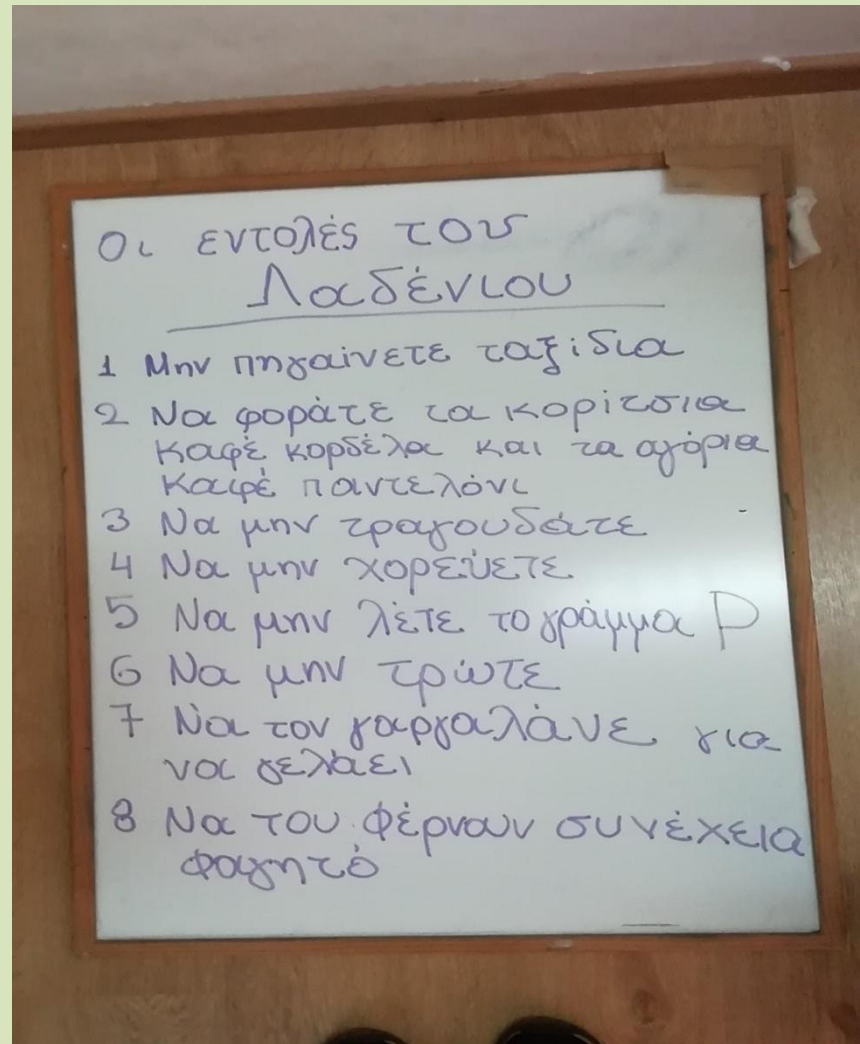 Οι εντολές του
Λαδένιου
1 Μην πηγαίνετε ταξίδια
2 Να φοράτε τα κορίτσια
καφέ κορδέλα και τα αγόρια
καφέ παντελόνι
3 Να μην τραγουδάτε
4 Να μην χορεύετε
5 Να μην λέτε το γράμμα Ρ
6 Να μην τρώτε
7 Να τον γαργαλάνε για
να γελάει
8 Να του φέρνουν συνέχεια
φαγητό